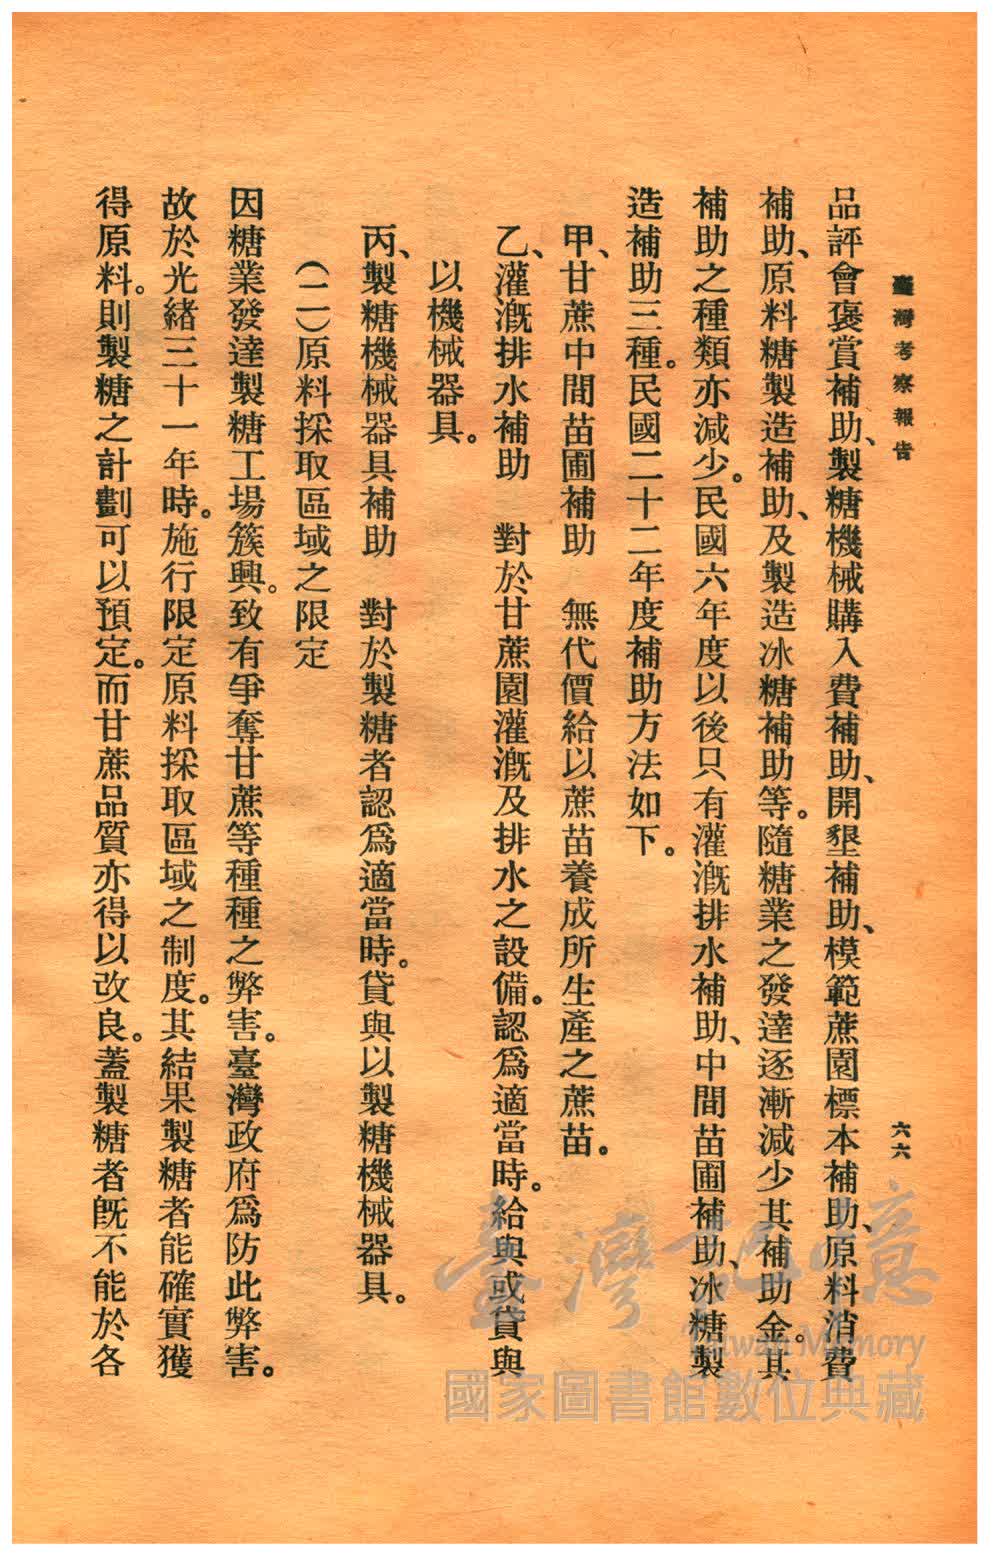 臺灣考察報告
六六
品評會褒賞補助、製糖機械購入費補助、開墾補助、模範蔗園標本補助、原料消費
補助、原料糖製造補助、及製造冰糖補助等。隨糖業之發達逐漸減少其補助金。其
補助之種類亦減少。民國六年度以後只有灌漑排水補助、中間苗圃補助、冰糖製
造補助三種。民國二十二年度補助方法如下。
甲、甘蔗中間苗圃補助　無代價給以蔗苗養成所生產之蔗苗。
乙、灌漑排水補助　對於甘蔗園灌漑及排水之設備。認爲適當時。給與或貸與
以機械器具。
丙、製糖機械器具補助　對於製糖者認爲適當時。貸與以製糖機械器具。
(二)原料採取區域之限定
因糖業發達製糖工場簇興。致有爭奪甘蔗等種種之弊害。臺灣政府爲防此弊害。
故於光緒三十一年時。施行限定原料採取區域之制度。其結果製糖者能確實獲
得原料。則製糖之計劃可以預定。而甘蔗品質亦得以改良。蓋製糖者旣不能於各
臺灣記憶
Taiwan Memory
國家圖書館數位典藏